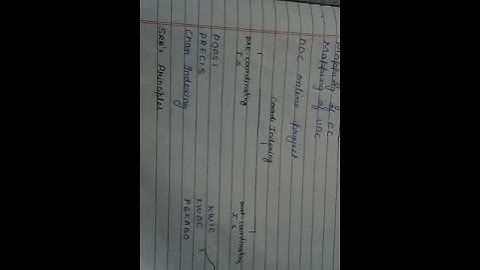 Mapping of CC
Mapping of UDC
DDC online project
Coordi Indexing
pre-coordinating post-coordinating
I.S I.S
POPSI KWIC
PRECIS KWOC
Chain Indexing
SRR's Principles